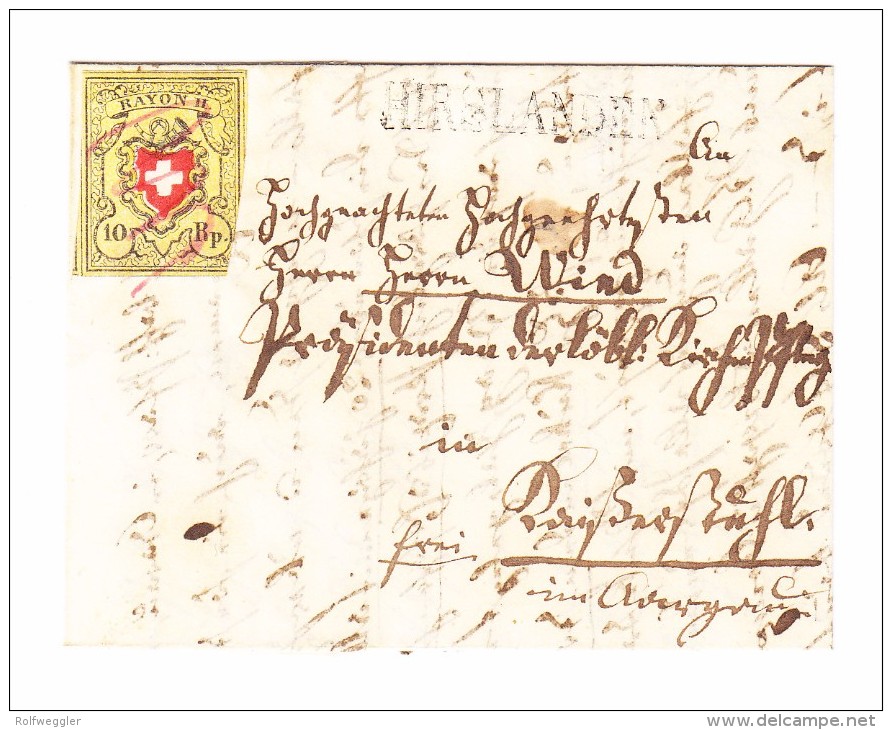 RAYON II.
10 Rp
HIRSLANDEN
An
Hochgeachteten Hochgeehrtesten
Herrn Herrn Wind
Präsidenten der löbl: Kirchenpfleg
in
Kaißerstuhl.
frei
im Aargau
Rolfweggler
www.delcampe.net